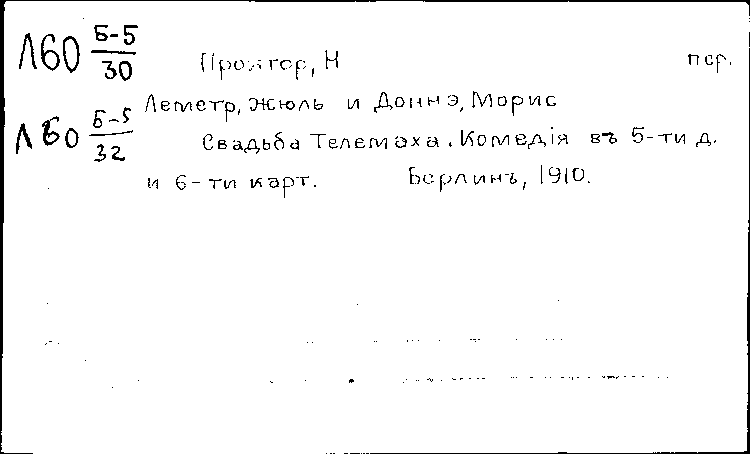 Л60 Б-5/30
Проктор, Н пер.
Леметр, Жюль и Доннэ, Морис
Л60 Б-5/32
Свадьба Телемаха. Комедія въ 5-ти д.
и 6-ти карт. Берлинъ, 1910.